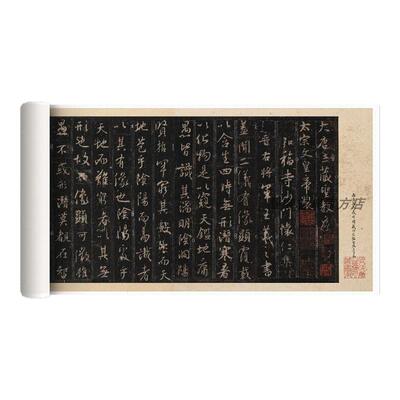 大唐三藏聖教序
太宗文皇帝製
弘福寺沙門懷仁集
晉右將軍王羲之書
蓋聞二儀有像顯覆載
以含生四時無形潛寒暑
以化物是以窺天鑑地庸
愚皆識其端明陰洞陽
賢哲罕窮其數然而天
地苞乎陰陽而易識者
以其有像也陰陽處乎
天地而難窮者以其無
形也故知像顯可徵雖
愚不惑形潛莫覩在智
方店